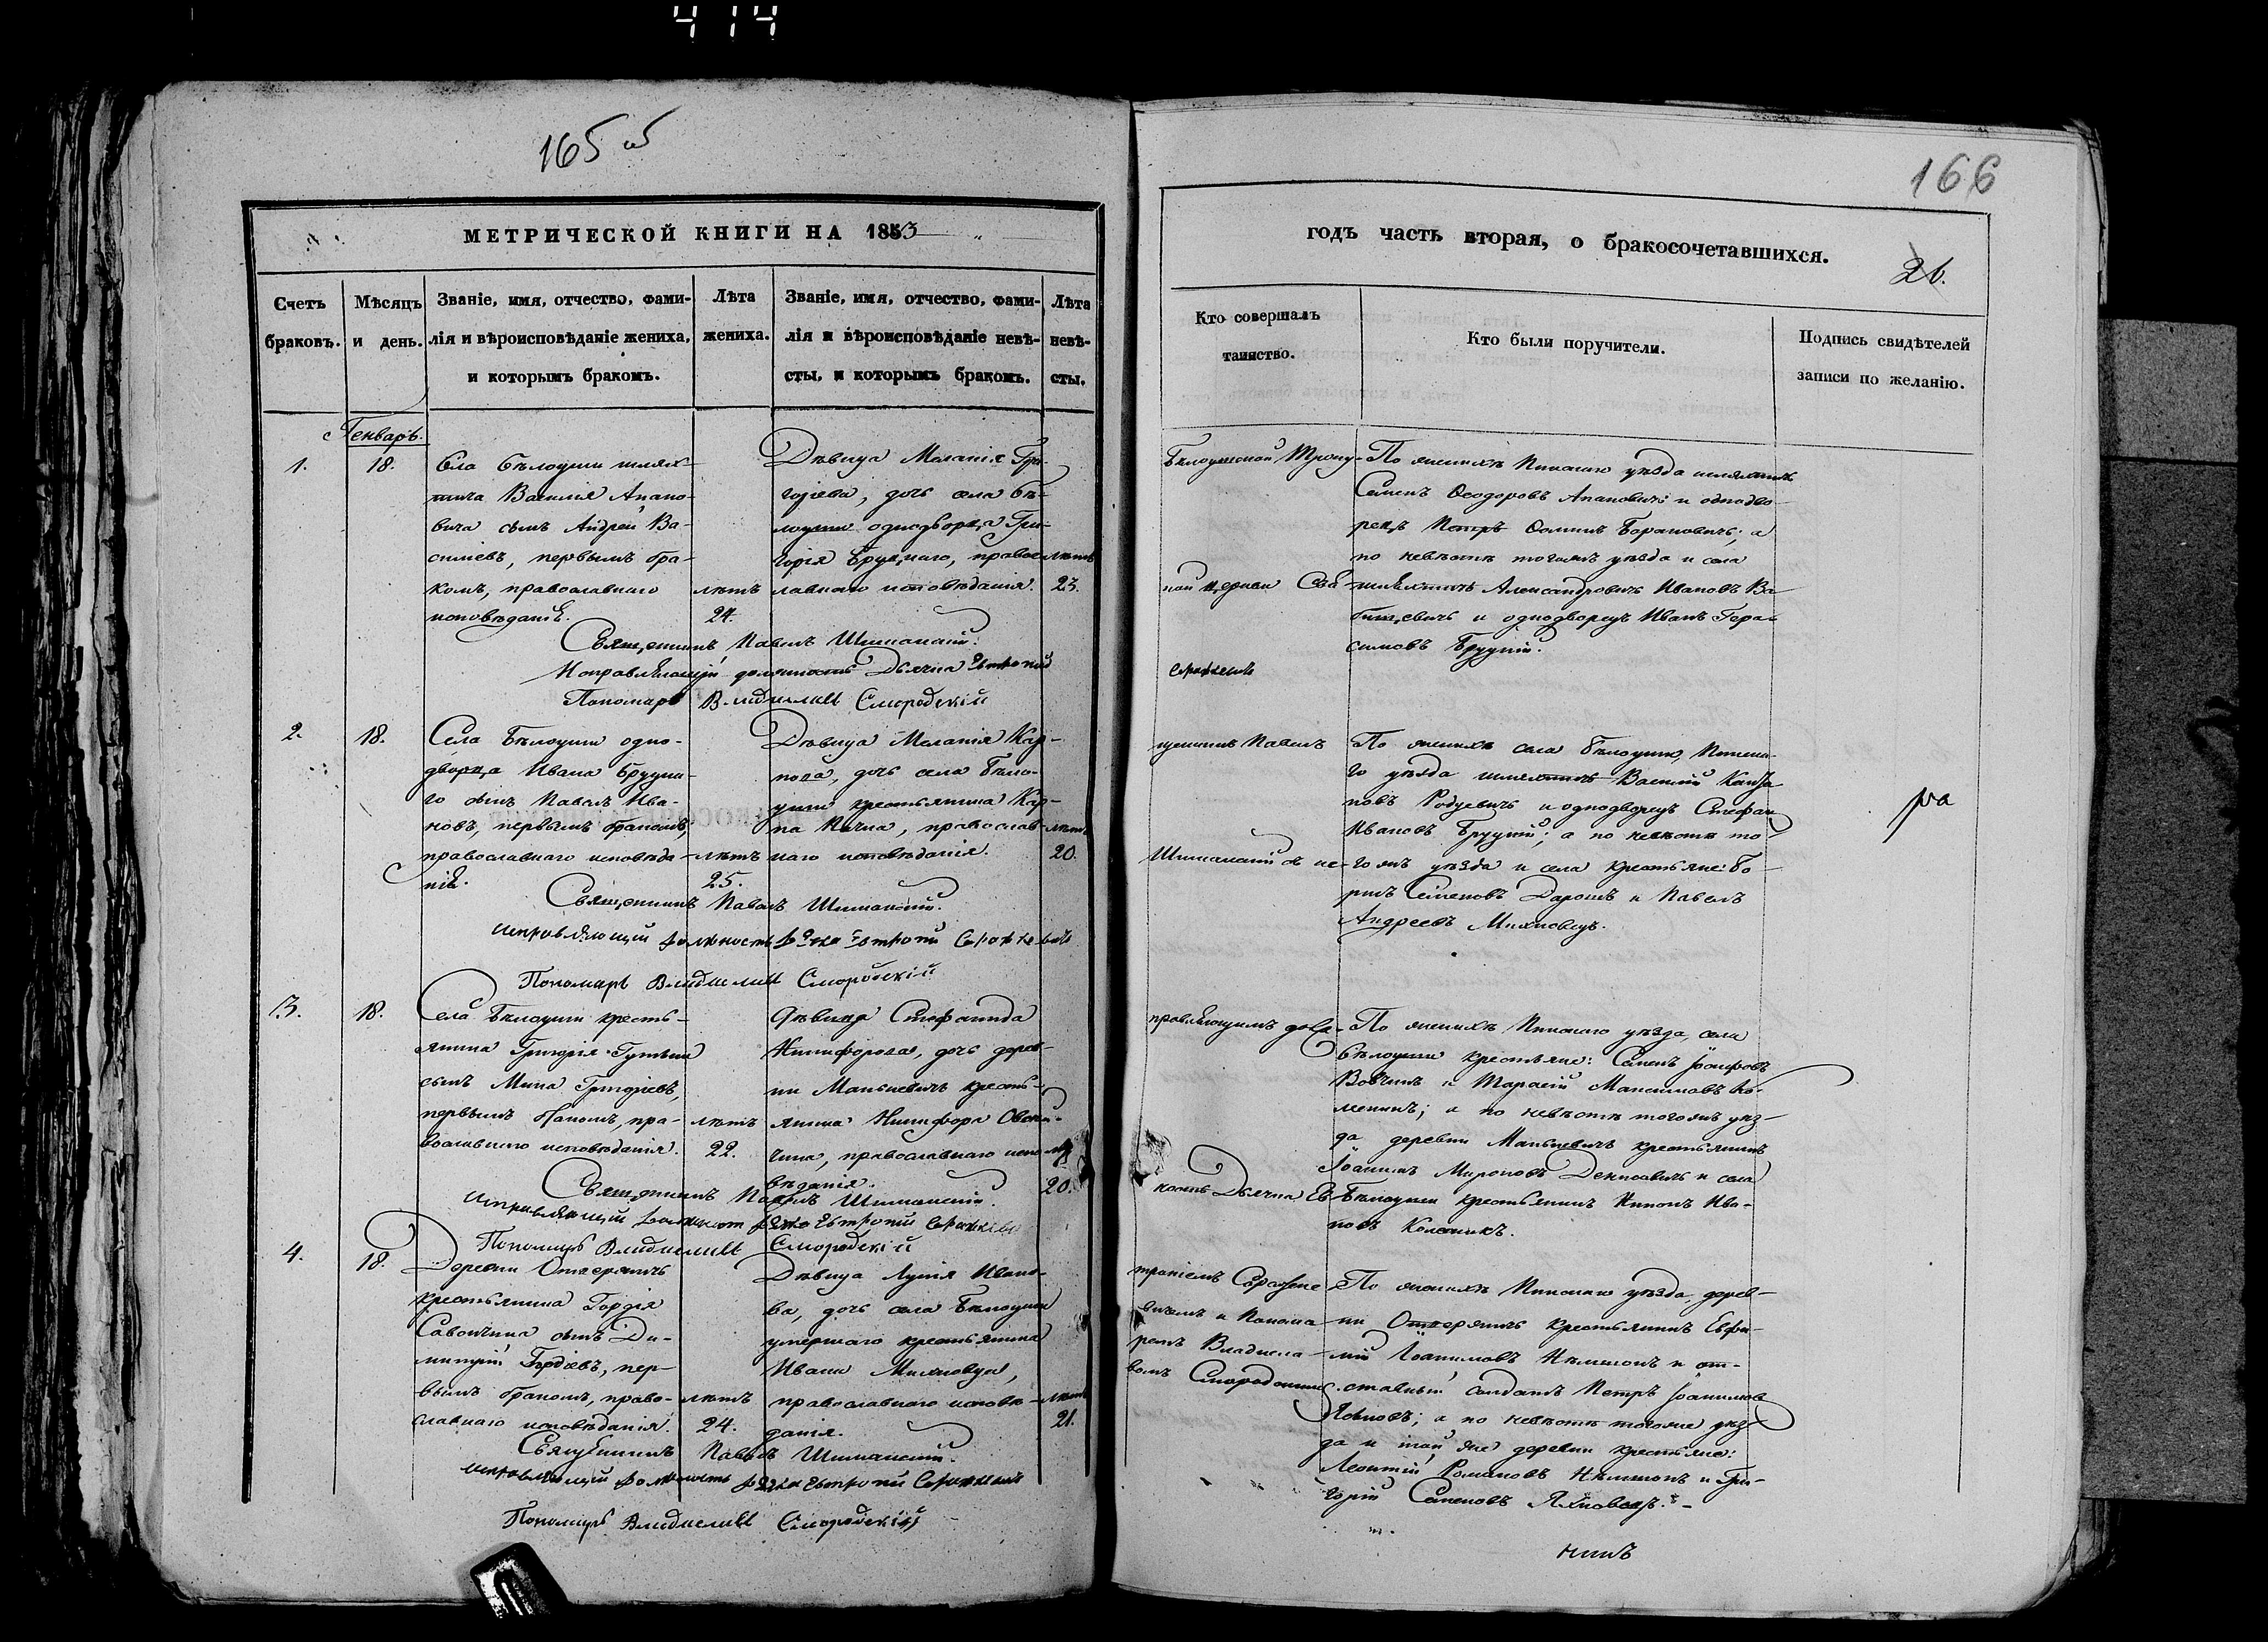 414
165 об
МЕТРИЧЕСКОЙ КНИГИ НА 1853
Счетъ браковъ.
Мѣсяцъ и день.
Званіе, имя, отчество, фами-
лія и вѣроисповѣданіе жениха,
и которымъ бракомъ.
Лѣта
жениха.
Званіе, имя, отчество, фами-
лія и вѣроисповѣданіе невѣ-
сты, и которымъ бракомъ.
Лѣта
невѣ-
сты.
Генварь.
1.
18.
Села Бѣлоуши шлях-
тича Василія Апано-
вича сынъ Андрей Ва-
силіевъ, первымъ бра-
комъ, православнаго
исповѣданія.
лѣтъ
24.
Дѣвица Меланія Гри-
горіева, дочь села Бѣ-
лоуши однодворца Гри-
горія Бруцкаго, правос-
лавнаго исповѣданія.
лѣтъ
23.
Священникъ Павелъ Шиманскій.
Исправляющій должность Дьячка Евтропій
Пономарь Владиславъ Смородскій
2.
18.
Села Бѣлоуши одно-
дворца Ивана Бруцка-
го сынъ Павелъ Ива-
новъ, первымъ бракомъ,
православнаго исповѣда-
нія.
лѣтъ
25.
Дѣвица Меланія Кар-
пова, дочь села Бѣло-
уши крестьянина Кар-
па, православ-
наго исповѣданія.
лѣтъ
20.
Священникъ Павелъ Шиманскій.
исправляющій должность дьячка Евтропій
Пономарь Владиславъ Смородскій
3.
18.
Села Бѣлоуши кресть-
янина Григорія
сынъ Мина Григоріевъ,
первымъ бракомъ, пра-
вославнаго исповѣданія.
лѣтъ
22.
Дѣвица Стефанида
Никифорова, дочь дерев-
ни Манькевичъ кресть-
янина Никифора
православнаго испо-
вѣданія.
20.
Священникъ Павелъ Шиманскій.
исправляющій должность дьячка Евтропій
Пономарь Владиславъ Смородскій
4.
18.
Деревни Отвержичъ
крестьянина Гордія
Савончика сынъ Ди-
митрій Гордіевъ, пер-
вымъ бракомъ, право-
славнаго исповѣданія.
лѣтъ
24.
Дѣвица Лукія Ивано-
ва, дочь села Бѣлоуши
умершаго крестьянина
Ивана Михновца,
православнаго исповѣ-
данія.
лѣтъ
21.
Священникъ Павелъ Шиманскій.
исправляющій должность дьячка Евтропій
Пономарь Владиславъ Смородскій
166
годъ часть вторая, о бракосочетавшихся.
26.
Кто совершалъ
таинство.
Кто были поручители.
Подпись свидѣтелей
записи по желанію.
Бѣлоушской Троиц-
кой церкви Свя-
щенникъ Павелъ
Шиманскій съ ис-
правляющимъ дол-
ность Дьячка Ев-
тропіемъ
вичемъ и Понома-
ремъ Владисла-
вомъ Смородскимъ
По женихѣ Пинскаго уѣзда шляхтичъ
Семенъ Ѳеодоровъ Апановичъ и однодво-
рецъ Петръ Ѳоминъ Барановичъ; а
по невѣстѣ тогожъ уѣзда и села
шляхтичъ Александровичъ Ивановъ
и однодворецъ Иванъ Гера-
симовъ Бруцкій.
По женихѣ села Бѣлоуши, Пинска-
го уѣзда шляхтичъ Василій
Родцевичъ и однодворецъ Стефанъ
Ивановъ Бруцкій; а по невѣстѣ то-
гожъ уѣзда и села крестьяне: Бо-
рисъ Семеновъ Дарошъ и Павелъ
Андреевъ Михновецъ.
По женихѣ Пинскаго уѣзда, села
Бѣлоуши крестьяне: Семенъ Іосифовъ
Вовчикъ и Тарасій Максимовъ
а по невѣстѣ тогожъ уѣз-
да деревни Манькевичъ крестьянинъ
Іоакимъ Мироновъ Денисовичъ и села
Бѣлоуши крестьянинъ Никонъ Ива-
новъ Колесникъ.
По женихѣ Пинскаго уѣзда, дерев-
ни Отвержичъ крестьянинъ Евфи-
мій Іоакимовъ и от-
ставный солдатъ Петръ Іоакимовъ
а по невѣстѣ тогоже уѣз-
да и той же деревни крестьяне:
Леонтій Романовъ и Гри-
горій Семеновъ Яхновецъ.